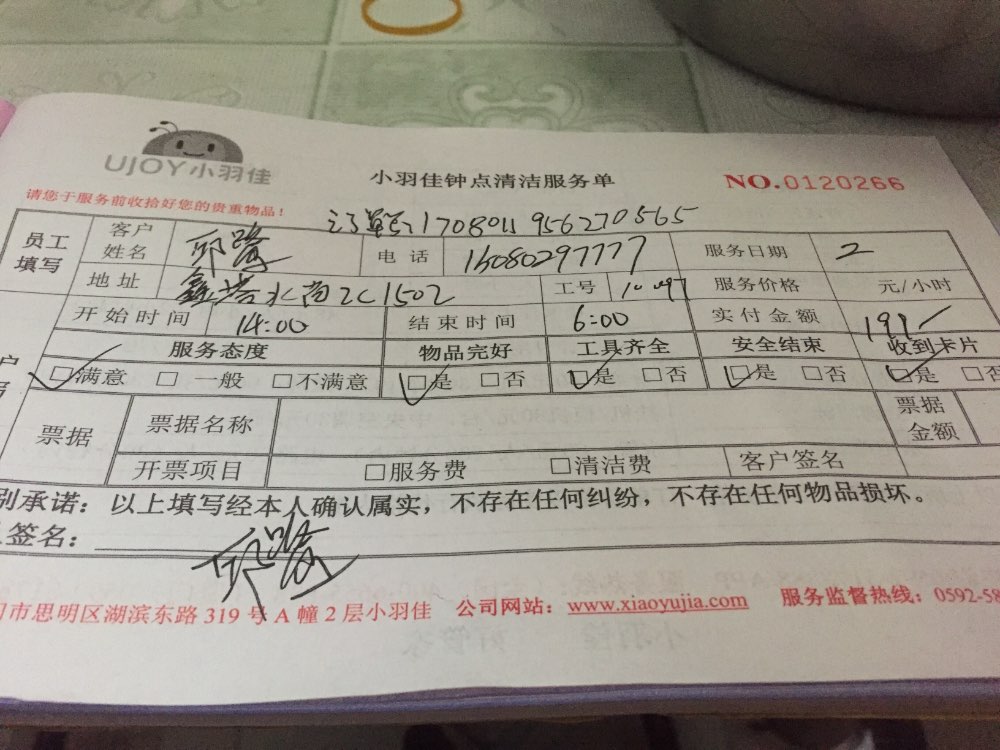 UJOY小羽佳
小羽佳钟点清洁服务单
NO.0120266
请您于服务前收拾好您的贵重物品！
订单号:1708011956270565
员工填写
客户姓名 邱璐 电话 15080297777 服务日期 2
地址 工号 服务价格 元/小时
开始时间 14:00 结束时间 6:00 实付金额 191
服务态度 物品完好 工具齐全 安全结束 收到卡片
□满意 □一般 □不满意 □是 □否 □是 □否 □是 □否 □是 □否
票据 票据名称 票据金额
开票项目 □服务费 □清洁费 客户签名
别承诺：以上填写经本人确认属实，不存在任何纠纷，不存在任何物品损坏。
签名：邱璐
门市思明区湖滨东路319号A幢2层小羽佳 公司网站：www.xiaoyujia.com 服务监督热线：0592-58